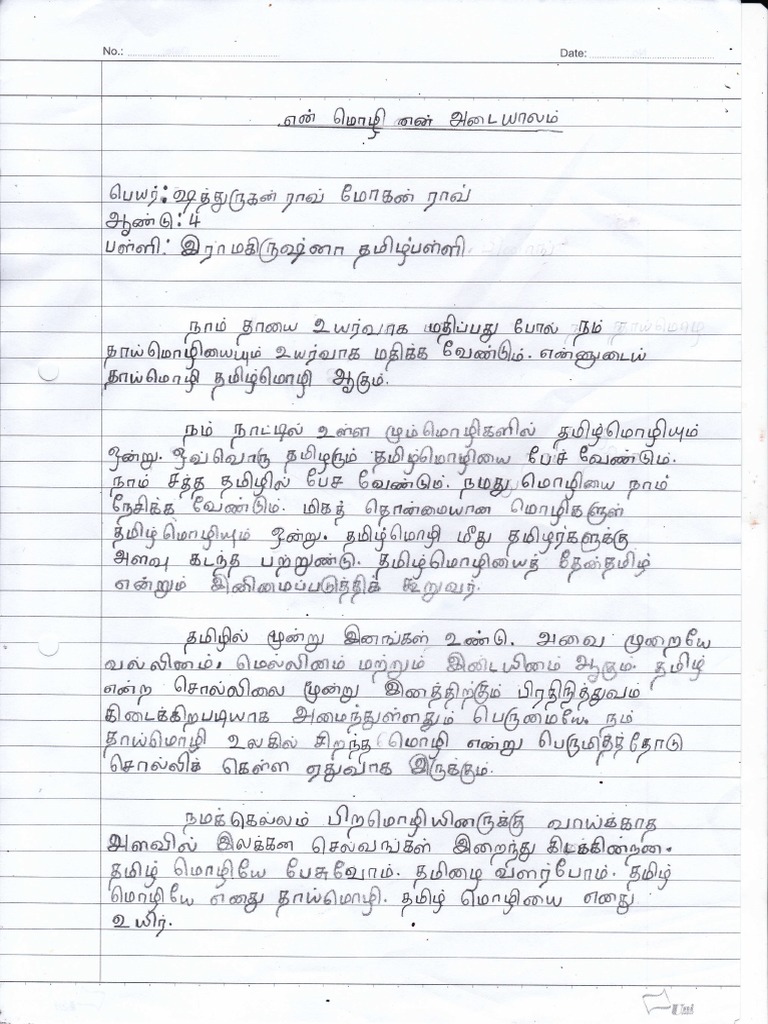 No.: Date:
என் மொழி என் அடையாலம்
பெயர்: ஷத்துருகன் ராவ் மோகன் ராவ்
ஆண்டு: 4
பள்ளி: இராமகிருஷ்னா தமிழ்பள்ளி
நாம் தாயை உயர்வாக மதிப்பது போல் நம்
தாய்மொழியையும் உயர்வாக மதிக்க வேண்டும். என்னுடைய்
தாய்மொழி தமிழ்மொழி ஆகும்.
நம் நாட்டில் உள்ள மும்மொழிகளில் தமிழ்மொழியும்
ஒன்று. ஒவ்வொரு தமிழரும் தமிழ்மொழியை பேச வேண்டும்.
நாம் சுத்த தமிழில் பேச வேண்டும். நமது மொழியை நாம்
நேசிக்க வேண்டும். மிகத் தொன்மையான மொழிகளுள்
தமிழ்மொழியும் ஒன்று. தமிழ்மொழி மீது தமிழர்களுக்கு
அளவு கடந்த பற்றுண்டு. தமிழ்மொழியைத் தேன்தமிழ்
என்றும் இனிமைப்படுத்திக் கூறுவர்.
தமிழில் மூன்று இனங்கள் உண்டு. அவை முறையே
வல்லினம், மெல்லினம் மற்றும் இடையினம் ஆகும். தமிழ்
என்ற சொல்லிலை மூன்று இனத்திற்கும் பிரதிநித்துவம்
கிடைக்கிறபடியாக அமைந்துள்ளதும் பெருமையே. நம்
தாய்மொழி உலகில் சிறந்த மொழி என்று பெருமிதத்தோடு
சொல்லிக் கெள்ள ஏதுவாக இருக்கும்.
நமக்கெல்லம் பிறமொழியினருக்கு வாய்க்காத
அளவில் இலக்கன செல்வங்கள் இறைந்து கிடக்கின்றன.
தமிழ் மொழியே பேசுவோம். தமிழை விளர்போம். தமிழ்
மொழியே எனது தாய்மொழி. தமிழ் மொழியை எனது
உயிர்.